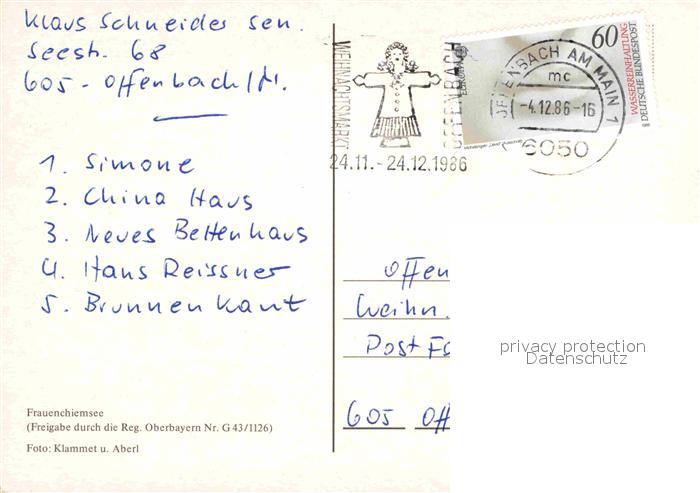 Klaus Schneider sen.
Seestr. 68
605 - Offenbach/M.
1. Simone
2. China Haus
3. Neues Bettenhaus
4. Hans Reissner
5. Brunnen Kant
Frauenchiemsee
(Freigabe durch die Reg. Oberbayern Nr. G 43/1126)
Foto: Klammet u. Aberl
WEIHNACHTSMARKT
OFFENBACH
24.11.-24.12.1986
60
WASSERREINHALTUNG
DEUTSCHE BUNDESPOST
OFFENBACH AM MAIN 1
mc
-4.12.86-16
6050
Offen
Weihn.
Post Fa
605 Off
privacy protection
Datenschutz